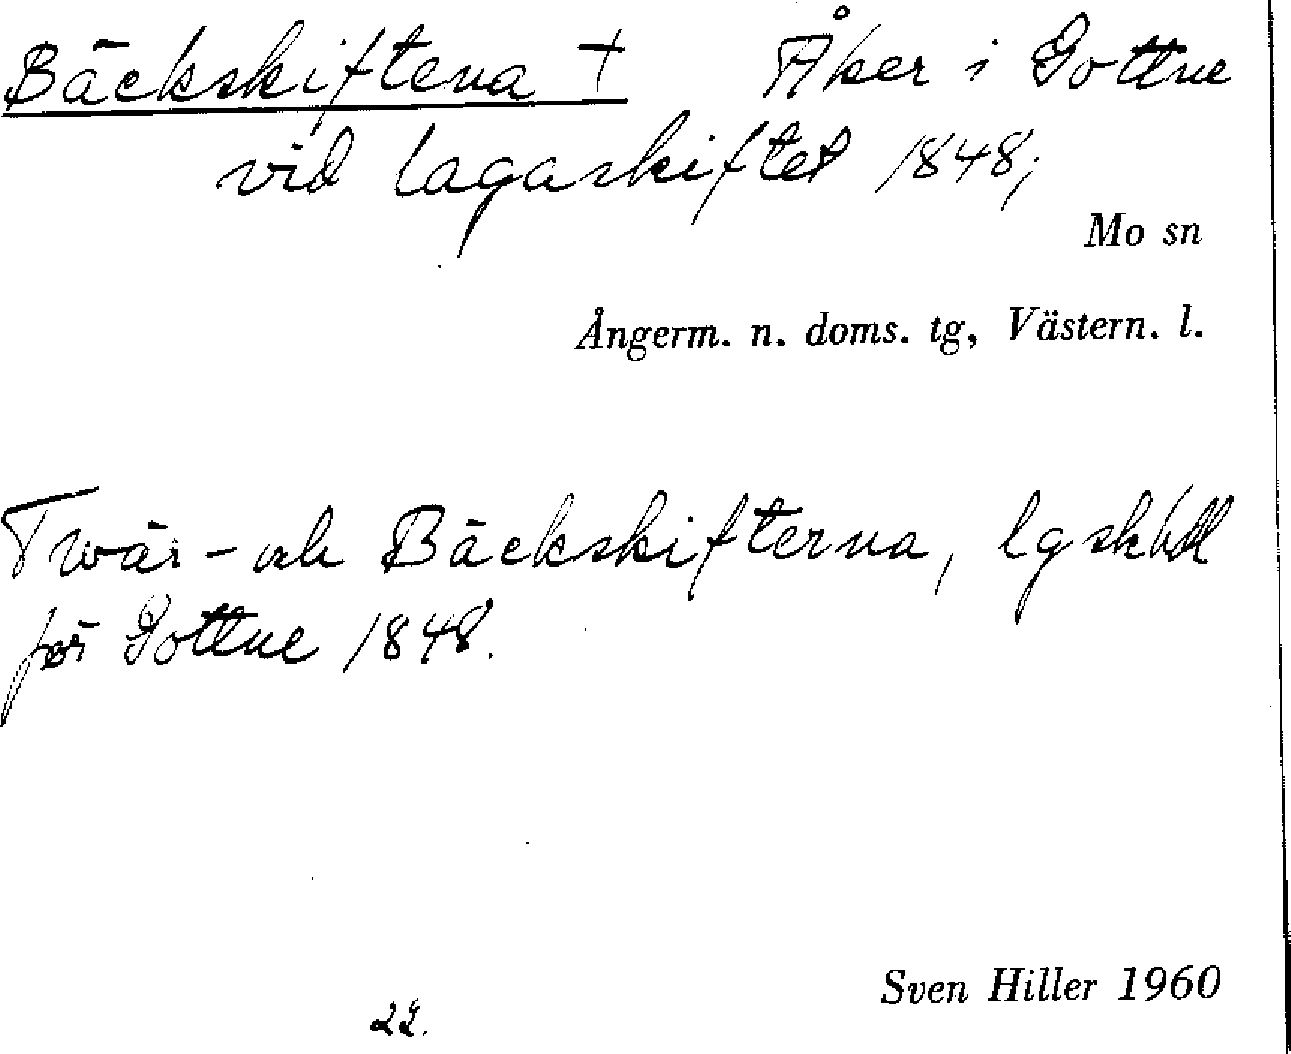 Bäckskiftena † Åker i Gottne
vid lagaskiftet 1848;
Mo sn
Ångerm. n. doms. tg, Västern. l.
Twär- och Bäckskifterna, lgskhdl
för Gottne 1848.
Sven Hiller 1960
22.